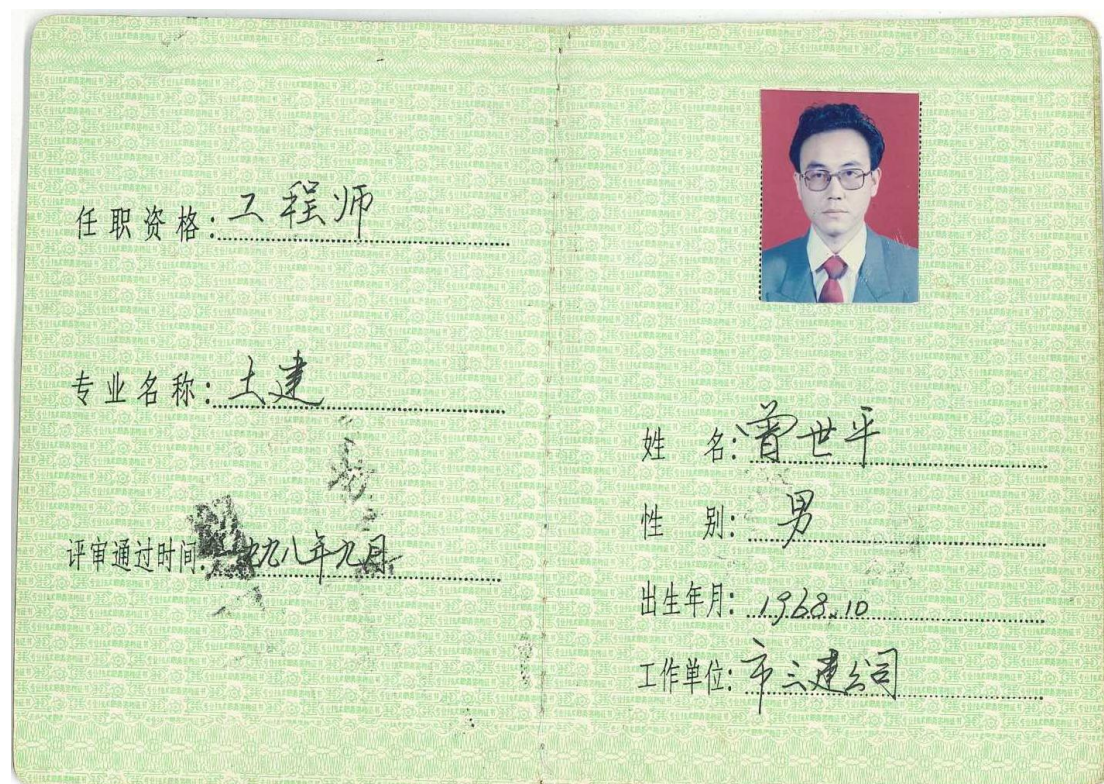 任职资格:工程师
专业名称:土建
评审通过时间:一九九八年九月
姓 名:曾世平
性 别:男
出生年月:1968.10
工作单位:市三建公司